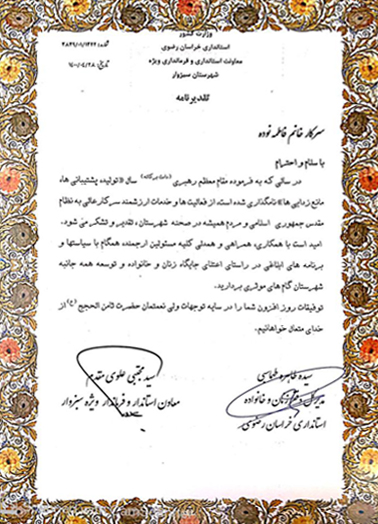 وزارت کشور
استانداری خراسان رضوی
معاونت استانداری و فرمانداری ویژه
شهرستان سبزوار
تقدیرنامه
سرکار خانم فاطمه نوده
با سلام و احترام
در سالی که به فرموده مقام معظم رهبری (دامت برکاته) سال «تولید، پشتیبانی ها،
مانع زدایی ها» نامگذاری شده است، از فعالیت ها و خدمات ارزشمند سرکار عالی به نظام
مقدس جمهوری اسلامی و مردم همیشه در صحنه شهرستان، تقدیر و تشکر می شود.
امید است با همکاری، همراهی و همدلی کلیه مسئولین ارجمند، همگام با سیاستها و
برنامه های ابلاغی در راستای اعتلای جایگاه زنان و خانواده و توسعه همه جانبه
شهرستان گام های موثری بردارید.
توفیقات روز افزون شما را در سایه توجهات ولی نعمتمان حضرت ثامن الحجج (ع) از
خدای متعال خواهانیم.
سیده طاهره
مدیرکل دفتر زنان و خانواده
استانداری خراسان رضوی
سید مجتبی علوی مقدم
معاون استاندار و فرماندار ویژه سبزوار